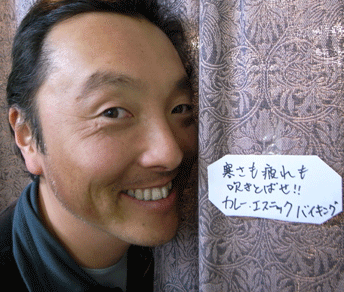 寒さも疲れも
吹きとばせ!!
カレー・エスニックバイキング